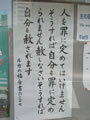 人を罪に定めてはいけません
そうすれば自分も罪に定め
られません赦しなさいそうすれば
自分も赦されます
ルカの福音書